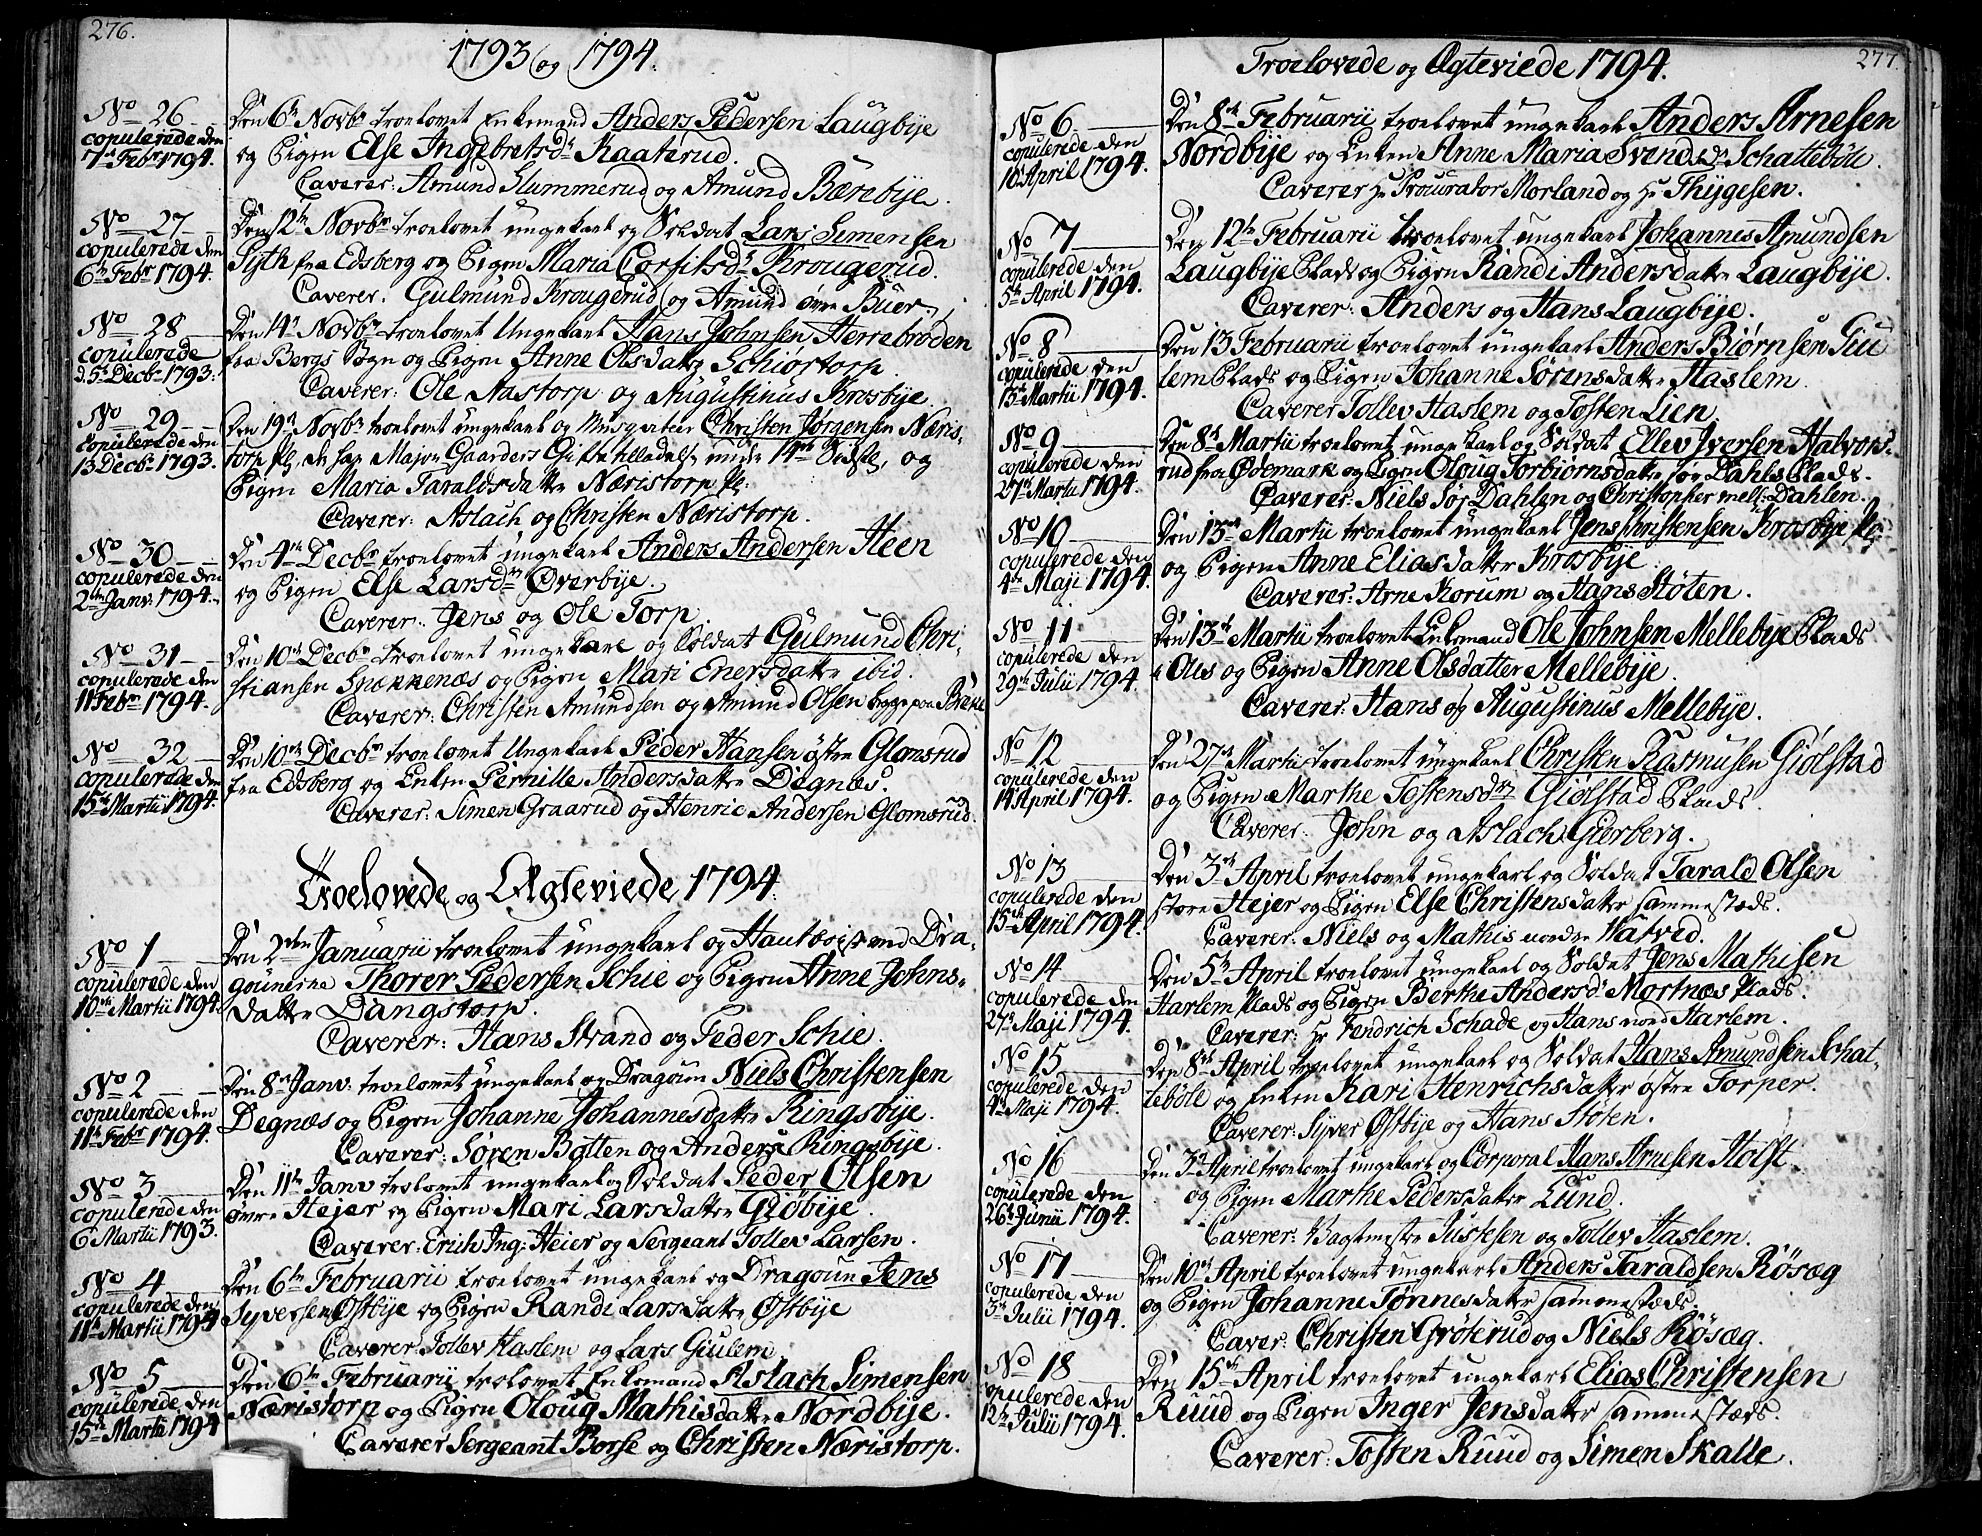 276.
1793 og 1794.
No 26
copulerede den
7de Febr 1794.
Den 6te Novbr troelovet Enkemand Anders Pedersen Laugbije
og Pigen Else Ingebretsdr Kaaterud.
Caverer: Amund Slummerud og Amund Bærebije.
No 27
copulerede den
6te Febr 1794.
Den 12te Novbr troelovet ungekarl og Soldat Lars Simensen
Syth fra Edsberg og Pigen Maria Corfitsdr Krougerud.
Caverer: Gulmund Krougerud og Amund øvre Buer.
No 28
copulerede
d. 5te Decbr 1793.
Den 14de Novbr troelovet Ungekarl Hans Johnsen Herrebrøden
fra Bergs Sogn og Pigen Anne Olsdatter Schiortorp.
Caverer: Ole Aastorp og Augustinus Krosbije.
No 29
copulerede den
13 Decbr 1793.
Den 19de Novbr troelovet ungekarl og Musqueteer Christen Jørgensen Næris-
torp Pl, der har Major Gaarders Gifte tilladelse under 14de Sidstl, og
Pigen Maria Taraldsdatter Næristorp Pl:
Caverer: Aslach og Christen Næristorp.
No 30
copulerede den
2den Janv. 1794.
Den 4de Decbr troelovet ungekarl Anders Andersen Heen
og Pigen Else Larsdr Øverbije.
Caverer: Jens og Ole Torp.
No 31
copulerede den
11te Febr 1794.
Den 10de Decbr troelovet ungekarl og Soldat Gulmund Chri-
stiansen Spækkenæs og Pigen Mari Enersdatter ibid.
Caverer: Christen Amundsen og Amund Olsen begge paa Bræke
No 32
copulerede den
15de Martii 1794.
Den 10de Decbr troelovet Ungekarl Peder Hansen østre Glomsrud
fra Edsberg og Enken Pernille Andersdatter Degnæs.
Caverer: Simen Graarud og Henric Andersen Glomsrud.
Troelovede og Ægteviede 1794.
No 1
copulerede den
10de Martii 1794.
Den 2den Januarii troelovet ungekarl og Hautboist ved Dra-
gounerne Thorer Pedersen Schie og Pigen Anne Johns-
datter Dangstorp.
Caverer: Hans Strand og Peder Schie.
No 2
copulerede den
11te Febr 1794.
Den 8de Janv. troelovet ungekarl og Dragoun Niels Christensen
Degnæs og Pigen Johanne Johannesdatter Ringsbije.
Caverer: Søren Botten og Anders Ringsbije.
No 3
copulerede den
6 Martii 1793.
Den 11te Janv trolovet ungekarl og Soldat Peder Olsen
øvre Hejer og Pigen Mari Larsdatter Giöbije.
Caverer: Erich Ing: Heier og Sergeant Tollev Larsen.
No 4
copulerede den
11te Martii 1794
Den 6te Februarii troelovet ungekarl og Dragoun Jens
Syversen Østbije og Pigen Randi Larsdatter Østbije
Caverer Tollev Haslem og Lars Giulem.
No 5
copulerede den
15de Martii 1794
Den 6te Februarii trolovet Enkemand Aslach Simensen
Næristorp og Pigen Oloug Mathisdatter Nordbije.
Caverer Sergeant Borse og Christen Næristorp.
277.
Troelovede og Ægteviede 1794.
No 6
copulerede den
10 April 1794.
Den 8de Februarii troelovet ungekarl Anders Arnesen
Nordbije og Enken Anne Maria Svendsdr Schattebøle.
Caverer Hr Procurator Morland og Hr Thijgesen.
No 7
copulerede den
5te April 1794.
Den 12te Februarii troelovet ungekarl Johannes Amundsen
Laugbije Plads og Pigen Randi Andersdatter Laugbije.
Caverer: Anders og Hans Laugbije.
No 8
copulerede den
15de Martii 1794.
Den 13 Februarii troelovet ungekarl Anders Biørnsen Giu
lem Plads og Pigen Johanne Sørensdatter Haslem.
Caverer Tollev Haslem og Tosten Lien.
No 9
copulerede den
27de Martii 1794.
Den 8de Martii troelovet ungekarl og Soldat Ellev Iversen Halvors-
rud fra Ødemark og Pigen Oloug Torbiørnsdatter sør Dahls Plads.
Caverer: Niels Sør Dahlen og Christopher mell: Dahlen.
No 10
copulerede den
4de Maji 1794.
Den 13de Martii troelovet ungekarl Jens Christensen Krosbije Pl:
og Pigen Anne Eliasdatter Krosbije.
Caverer: Arne Korum og Hans Støten.
No 11
copulerede den
29de Julii 1794.
Den 13de Martii troelovet Enkemand Ole Johnsen Mellebije Plads
Ols og Pigen Anne Olsdatter Mellebije.
Caverer: Hans og Augustinus Mellebije.
No 12
copulerede den
14 April 1794.
Den 27de Martii troelovet ungekarl Christen Rasmusen Giölstad
og Pigen Marthe Tostensdr Giölstad Plads.
Caverer: John og Aslach Gierberg.
No 13
copulerede den
15de April 1794.
Den 3de April troelovet ungekarl og Soldat Tarald Olsen
store Hejer og Pigen Else Christensdatter sammestæds.
Caverer: Niels og Mathis nordre Hatved.
No 14
copulerede den
27de Maji 1794.
Den 5te April troelovet ungekarl og Soldat Jens Mathisen
Harlem Plads og Pigen Berthe Andersdr Mortnæs Plads.
Caverer: Hr Fendrich Schade og Hans nord Harlem.
No 15
copulerede den
4de Maji 1794.
Den 8de April troelovet ungekarl og Soldat Hans Amundsen Schat-
tebøle og Enken Kari Henrichsdatter østre Torper.
Caverer: Syver Østbije og Hans Støten.
No 16
copulerede den
26de Junii 1794.
Den 3de April troelovet ungekarl og Corporal Hans Arnesen Holst
og Pigen Marthe Pedersdatter Lund.
Caverer: Vagtmester Justesen og Tollev Haslem.
No 17
copulerede den
3de Julii 1794.
Den 10de April troelovet ungekarl Anders Taraldsen Røsæg
og Pigen Johanne Tønnesdatter sammestæds.
Caver: Christen Grøterud og Niels Røsæg.
No 18
copulerede den
12te Julii 1794.
Den 15de April troelovet ungekarl Elias Christensen
Ruud og Pigen Inger Jensdatter sammestæds.
Caverer: Tosten Ruud og Simen Skalle.